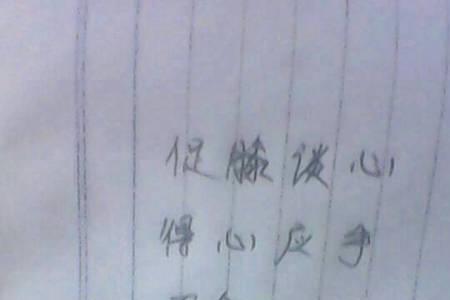 促膝谈心
得心应手